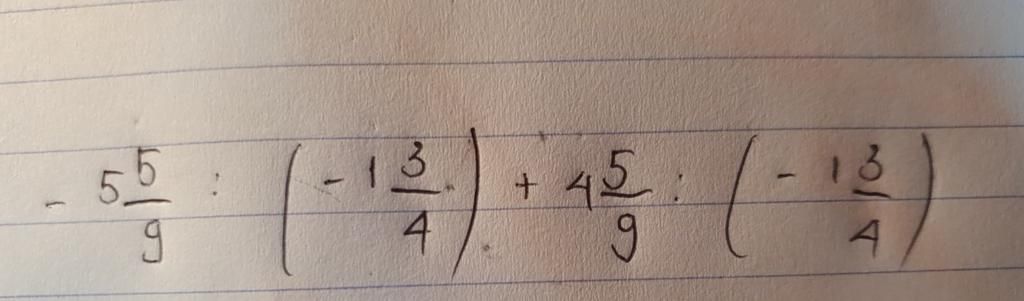 - 5 5/9 : (- 1 3/4) + 4 5/9 : (- 1 3/4)